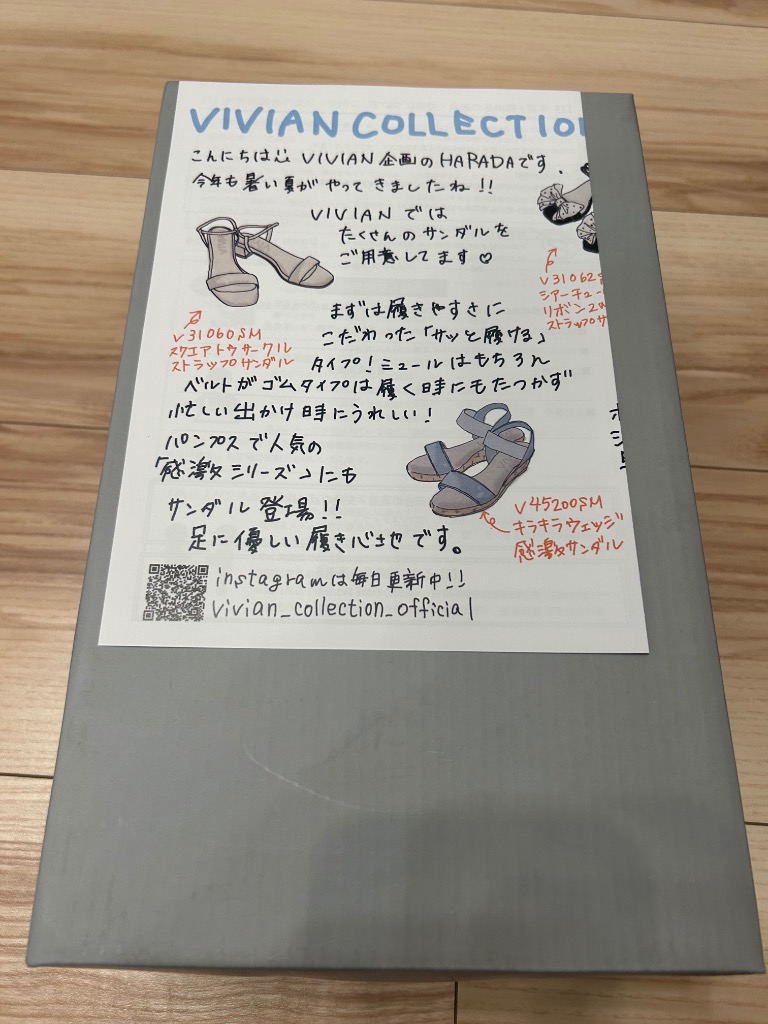 VIVIAN COLLECTIO
こんにちは VIVIAN 企画のHARADAです.
今年も暑い夏がやってきましたね!!
VIVIANでは
たくさんのサンダルを
ご用意してます♡
V31060SM
スクエアトウサークル
ストラップサンダル
V31062S
シアーチュー
リボン2w
ストラップサ
まずは履きやすさに
こだわった「サッと履ける」
タイプ!ミュールはもちろん
ベルトがゴムタイプは履く時にもたつかず
忙しい出かけ時にうれしい!
パンプスで人気の
「感激シリーズ」にも
サンダル登場!!
足に優しい履き心地です。
V45200SM
キラキラウェッジ
感激サンダル
instagramは毎日更新中!!
vivian_collection_official